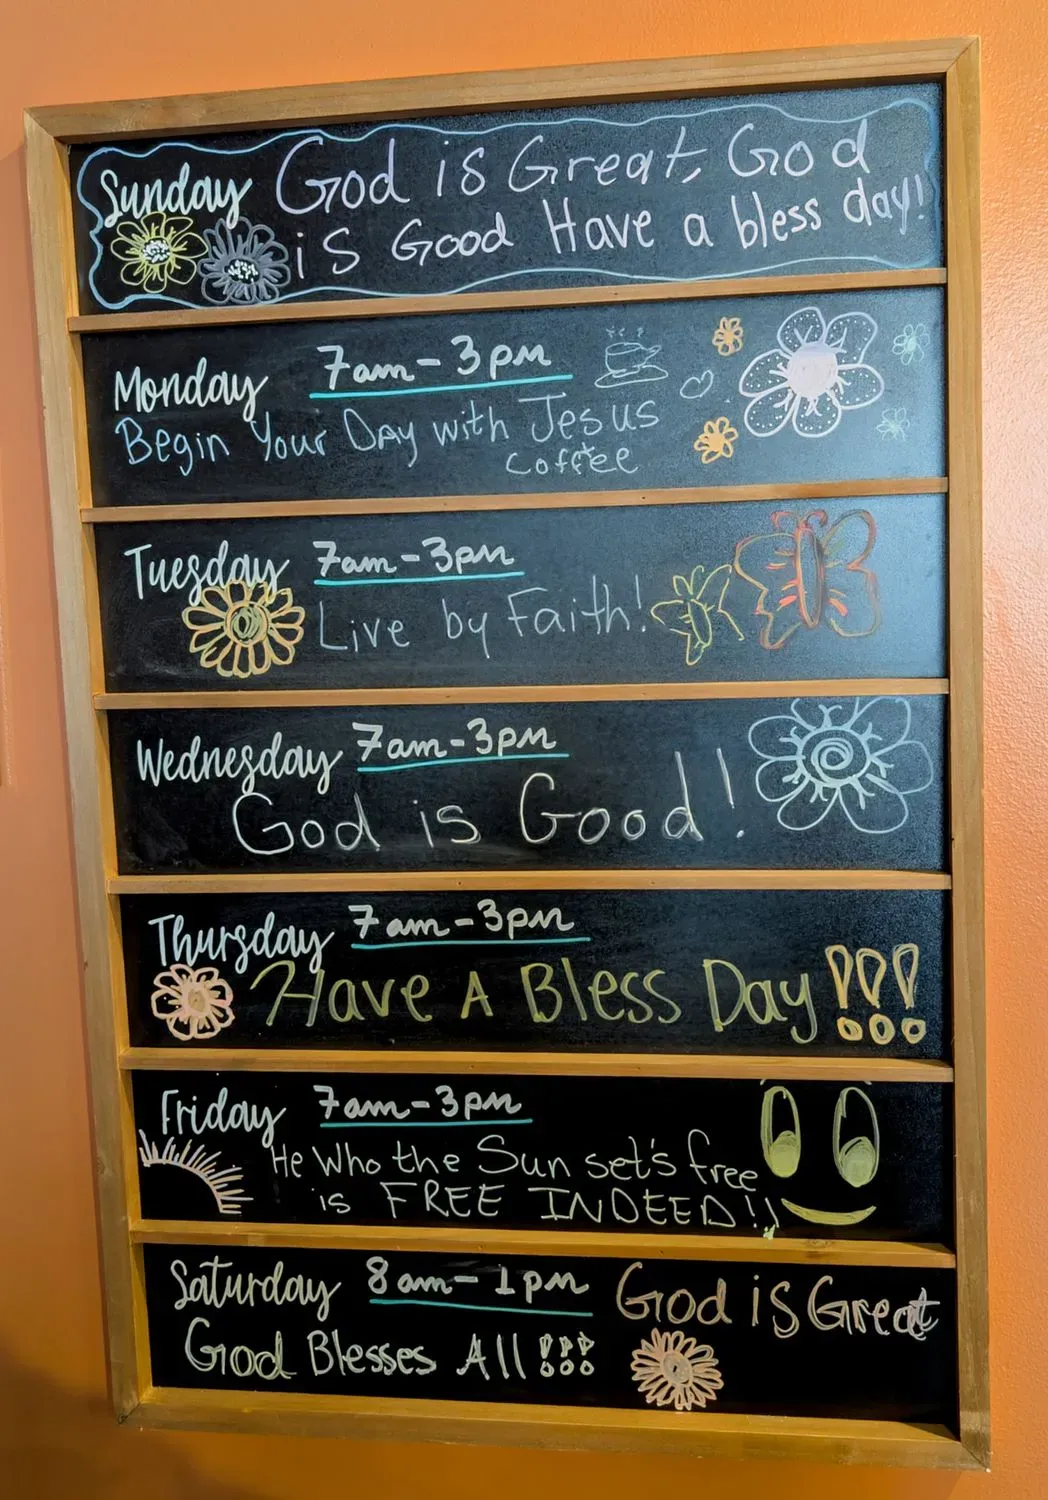 Sunday God is Great, God
is Good Have a bless day!
Monday 7am-3pm
Begin Your Day with Jesus
coffee
Tuesday 7am-3pm
Live by Faith!
Wednesday 7am-3pm
God is Good!
Thursday 7am-3pm
Have A Bless Day!!!
Friday 7am-3pm
He Who the Sun set's free
is FREE INDEED!!
Saturday 8am-1pm God is Great
God Blesses All!!!